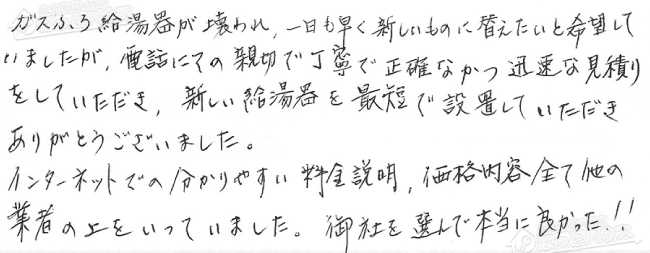 ガスふろ給湯器が壊われ、一日も早く新しいものに替えたいと希望して
いましたが、電話にての親切で丁寧で正確なかつ迅速な見積り
をしていただき、新しい給湯器を最短で設置していただき
ありがとうございました。
インターネットでの分かりやすい料金説明、価格内容全て他の
業者の上をいっていました。御社を選んで本当に良かった!!